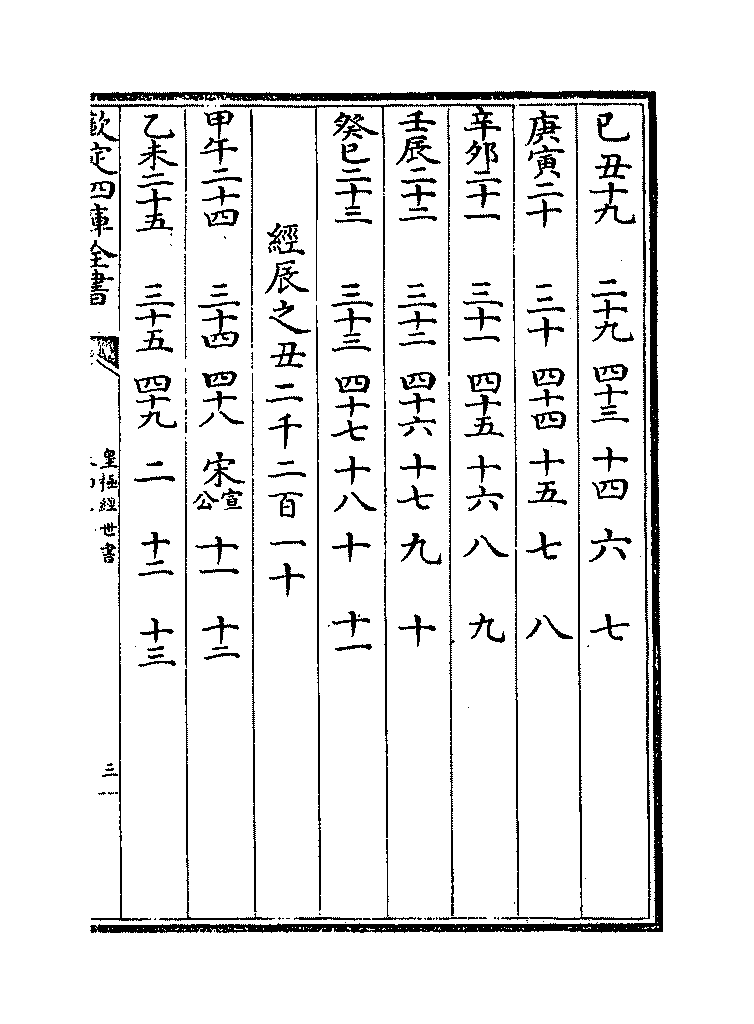 已丑十九 二十九 四十三 十四 六 七
庚寅二十 三十 四十四 十五 七 八
辛卯二十一 三十一 四十五 十六 八 九
壬辰二十二 三十二 四十六 十七 九 十
癸巳二十三 三十三 四十七 十八 十 十一
經辰之丑二千二百一十
甲午二十四 三十四 四十八 宋宣公 十一 十二
乙未二十五 三十五 四十九 二 十二 十三
欽定四庫全書
皇極經世書